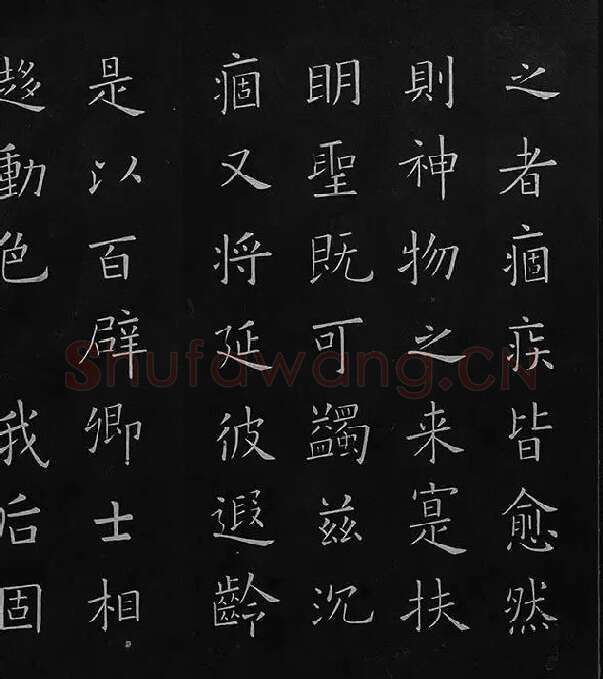 之者痼疾皆愈然
則神物之来寔扶
眀聖既可蠲兹沉
痼又将延彼遐齡
是以百辟卿士相
趍動色 我后固
Shufawang.CN